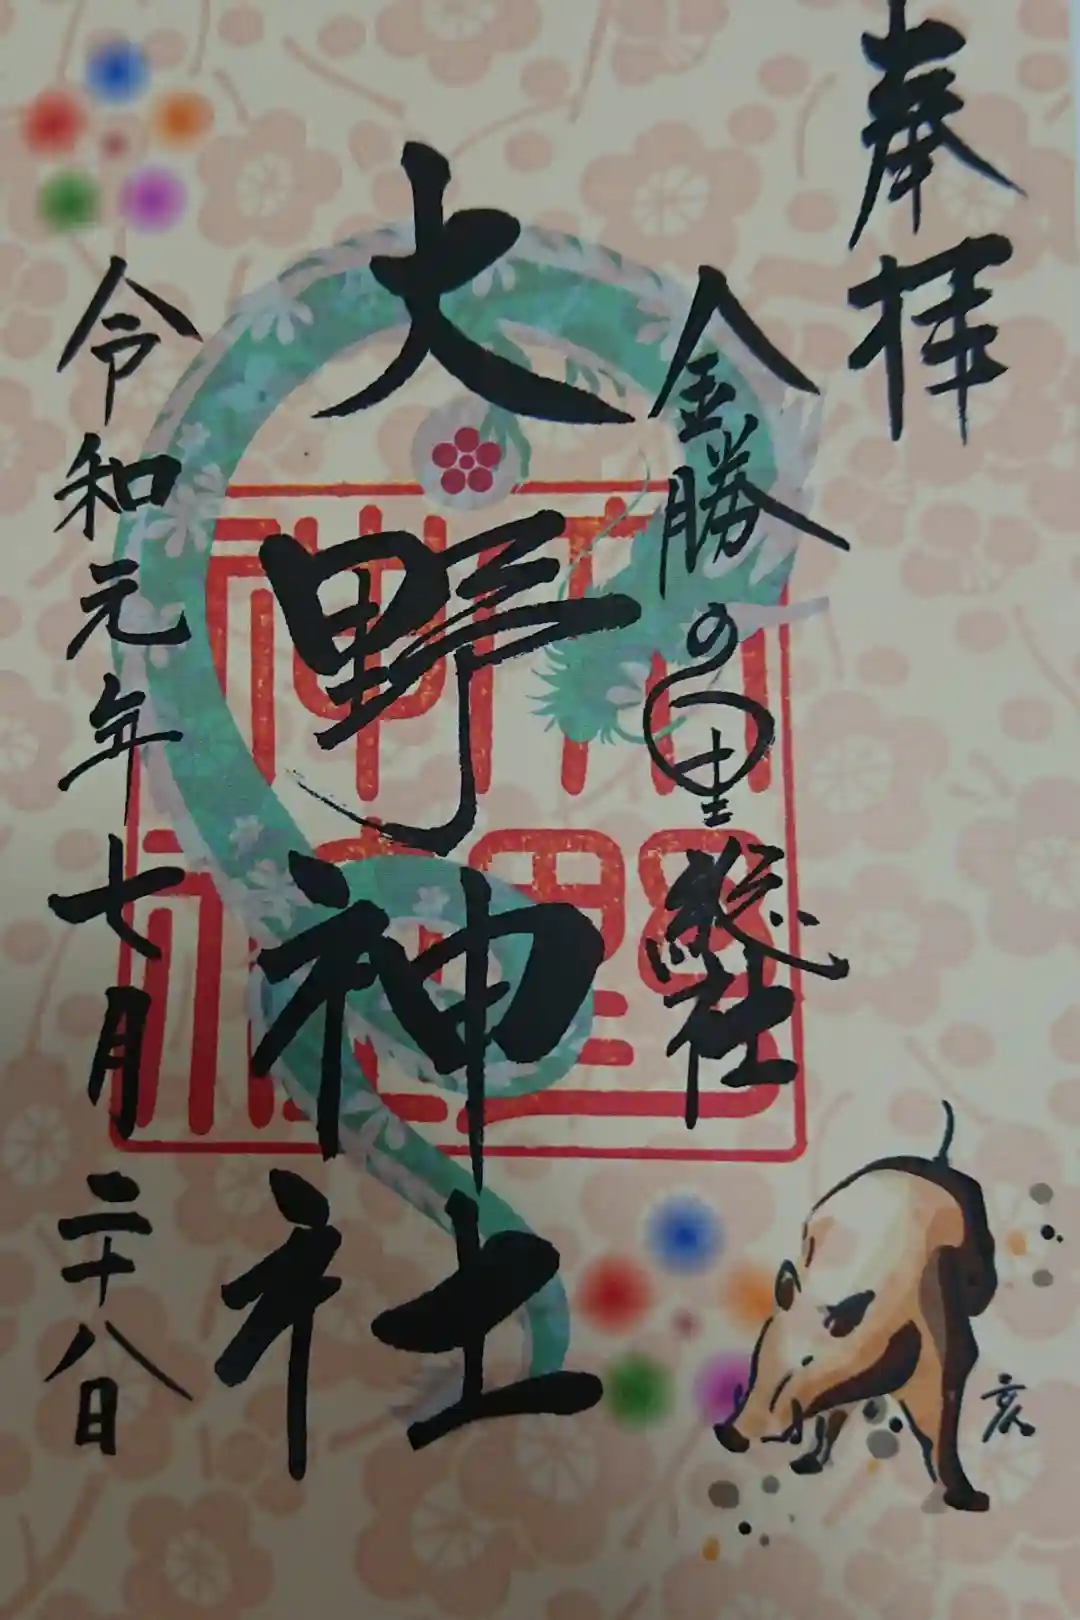 奉拝
金勝の里総社
大野神社
令和元年七月二十八日
亥